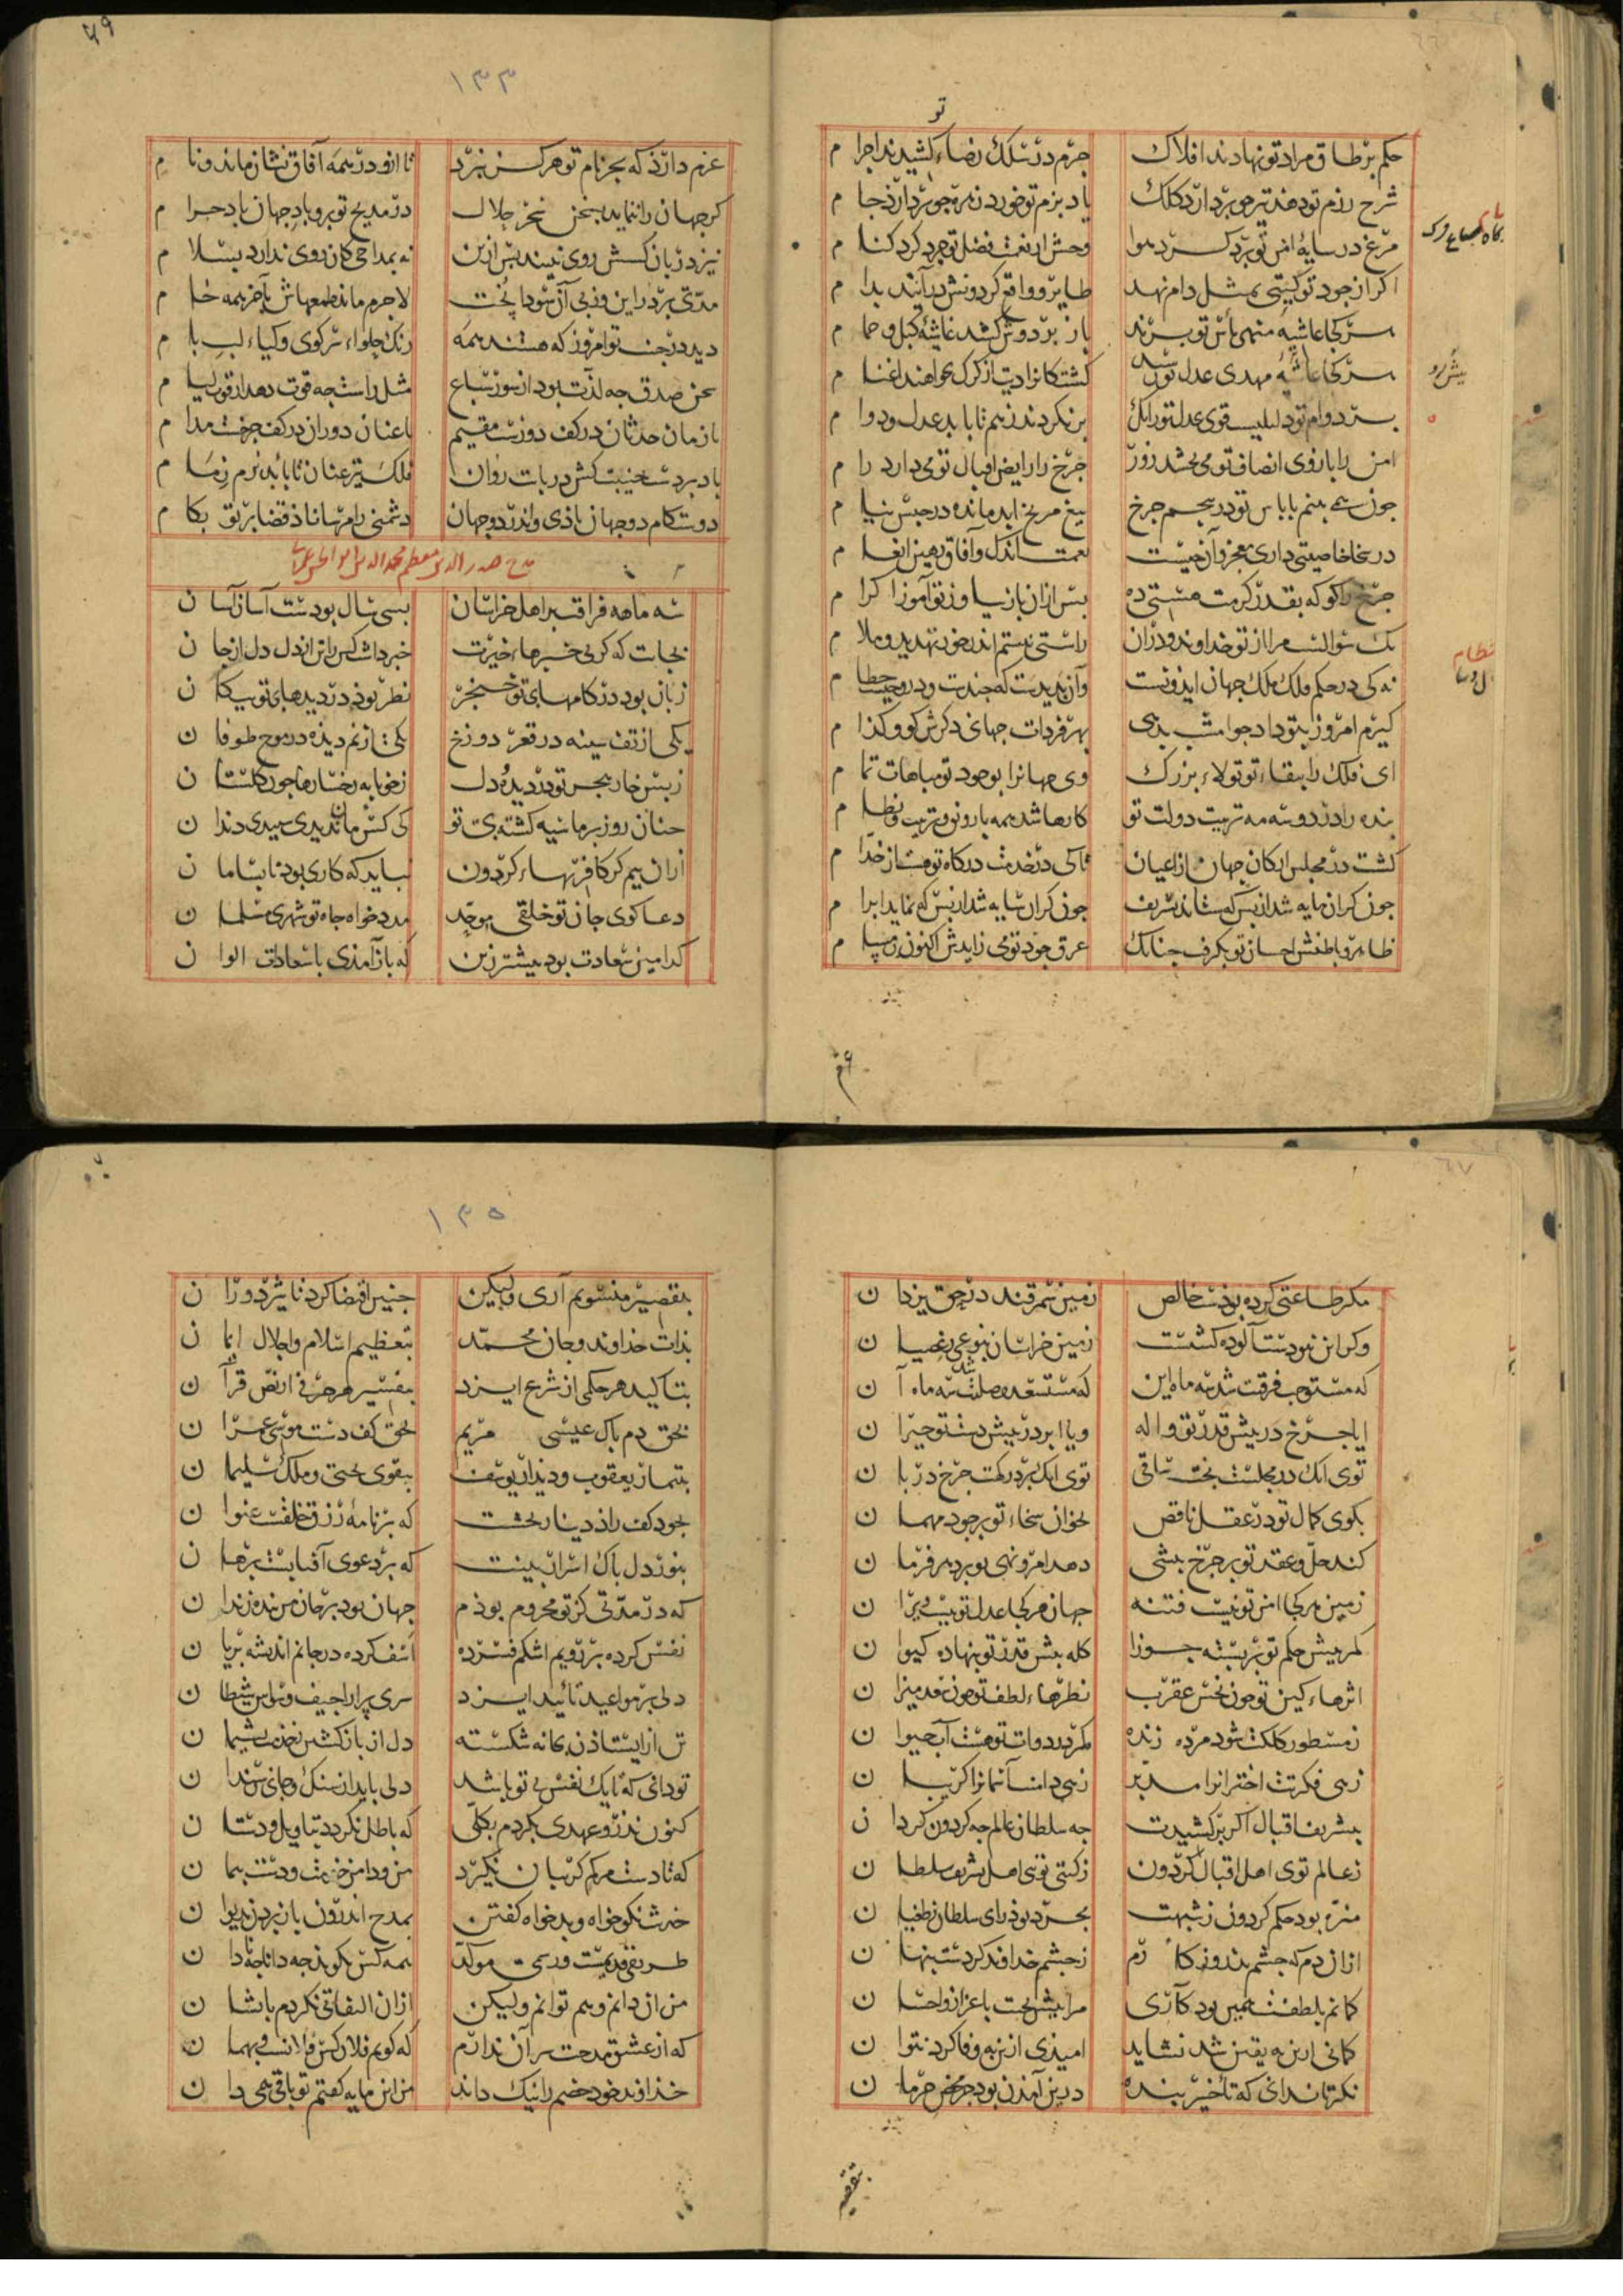 تو
حکم بر طاق مراد تو نهادند افلاک جرم در سلک رضاء کشیدند اجرا م
شرح رزم تو دهد تیر چو بردارد کلک یاد بزم تو خورد زهره چو بردارد جا م
مرغ در سایهٔ امن تو برد کرد هوا وحش از نعمت فضل تو چرد کرد کنا م
اکر از جود تو کیتی بمثل دام نهد طایر و واقع کردونش درآیند بدا م
سر کجا غاشیه منهی باس تو برند باز بر دوش کشد غاشیهٔ کبک و حما م
سر کجا غاشیهٔ مهدی عدل تو رسد کشتکانرا دیت از کرک بخواهند اغنا م
بر دوام تو دلیلست قوی عدل تو زانک بر نکردند ز هم تا بابد عدل و دوا م
امن را بازوی انصاف تو می بخشد زور چرخ را رایض اقبال تو می دارد را م
چون همی بینم با باس تو در پنجم چرخ تیغ مریخ ابد مانده در حبس نیا م
در سخا خاصیتی داری معجز و آن چیست نعمت اندک و آفاق رهین انعا م
چرخ را کو که بقدر کرمت هستی ده پس ازان باز بیا وز تو آموز اکرا م
یک سؤالست مرا از تو خداوند و دران راستی نیستم اندر خور تهدید و ملا م
نه کی در حکم ملک ملک جهان ایذونست وآن ندیدست که چندست ودر و چیست حطا م
کیرم امروز بتو داد جوا مشب بدهی بهر فردات جهانی دکرش کو و کدا م
ای فلک را ببقاء تو تولاء بزرک وی جهانرا بوجود تو مباهات تما م
بنده را در دو سه مه تربیت دولت تو کارها شد همه با رونق و ترتیب و نظا م
کشت در مجلس ارکان جهان از اعیان تا کی در خدمت درکاه تو هست از خدا م
چون کران مایه شد از بس که ستاند تشریف چون کران سایه شد از بس که نماید ابرا م
ظاهر و باطنش احسان تو بکرفت چنانک عرق جود تو می زایدش اکنون ز مسا م
پیش رو
نظام
۱۳۳
عزم دارد که بجز نام تو هرکز نبرد تا ازو در همه آفاق نشان ماند و نا م
کر جهان را ننماید بسخن سحر حلال در مدیح تو برو باد جهان باد حرا م
نیز در زبان کسش روی نبیند پس ازین نه بمداحی کان روی ندارد بسلا م
مدتی برد در این وزپی آن سودا پخت لاجرم ماند طمعهاش بآخر همه خا م
دید در جنب تو امروز که هستند همه رنک حلواء سر کوی و کیاء لب با م
سخن صدق چه لذت بود از سوز سماع مثل راست چه قوت دهد از قول سا م
تا زمان حدثان در کف دورست مقیم تا عنان دوران در کف چرخست مدا م
باد بر دست جنیبت کش دریات روان فلک تیز عنان تا بابد نرم زما م
دوستکام دو جهان باذی و اندر دو جهان دشمنی را مرسانا ذ قضا بر تو بکا م
مدح صدر الدین معظم مجد الدین ابوالحسن عمرانی
سه ماهه فراق بر اهل خراسان بسی سال بودست آسان آسا ن
بجات که کر بی خبرهاء خیرت خبر داشت کس را تن از دل دل از جا ن
زبان بود در کامهای تو خنجر نظر بوذ در دیدهای تو پیکا ن
یکی از تف سینه در قعر دوزخ یکی از نم دیذه در موج طوفا ن
ز بس خار هجر تو در دیدهٔ دل ز خونابه رخسارها چون کلستا ن
چنان روز بر ما سیه کشته بی تو کی کس مان ندیدی سپیدی دندا ن
ازان بیم کر کافریهاء کردون نباید که کاری بود نابساما ن
دعا کوی جان تو خلقی موحد مدد خواه جاه تو شهری مسلما ن
کدامین سعادت بود بیشتر زین که باز آمذی با سعادات الوا ن
مکر طاعتی کرده بودست خالص زمین سمرقند در حق یزدا ن
وکر این نبودست آلوده کشتست زمین خراسان بنوعی ز عصیا ن
که مستوجب فرقت شد سه ماه این که مستسعد وصلت شد سه ماه آ ن
ایا چرخ در پیش قدر تو واله ویا ابر در پیش دست تو حیرا ن
توی انک در مجلست بخت ساقی توی انک بر درکهت چرخ دربا ن
بکوی کمال تو در عقل ناقص بخوان سخاء تو بر جود مهما ن
کند حل و عقد تو بر چرخ پیشی دهد امر و نهی تو بر دهر فرما ن
زمین هرکجا امن تو نیست فتنه جهان هرکجا عدل تو نیست ویرا ن
کمر پیش حکم تو بربسته جوزا کله پیش قدر تو بنهاده کیوا ن
اثرهاء کین تو چون نحس عقرب نظرهاء لطف تو چون سعد میزا ن
ز مسطور کلکت شود مرده زنده مکر در دوات تو هست آب حیوا ن
زهی فکرتت اختران را مدبر زهی دامنت آسمانرا کریبا ن
بتشریف اقبال اکر برکشیدت چه سلطان عالم چه کردون کردا ن
ز عالم توی اهل اقبال کردون ز کیتی توی اهل تشریف سلطا ن
منزه بود حکم کردون ز شبهت مجرد بود رای سلطان ز طغیا ن
ازان دم که چشم بذ روزکا رم ز چشم خداوند کردست پنها ن
کمانم بلطفت همین بود کاری مرا پیش بخت باعزاز و احسا ن
کمانی ازین به یقین شد نشاید امیذی ازین به وفا کرد نتوا ن
نکر تا ندانی که تأخیر بنده درین آمذن بود جز محض حرما ن
۱۳۵
بتقصیر منسوبم آری ولیکن چنین اقتضا کرد تاثیر دورا ن
بذات خداوند و جان محمد بتعظیم اسلام و اجلال ایما ن
بتاکید هر حکمی از شرع ایزد بتفسیر هر حرفی از نص قرآ ن
بحق دم پاک عیسی مریم بحق کف دست موسی عمرا ن
بتیمار یعقوب و دیدار یوسف بتقوی یحیی و ملک سلیما ن
بجود کف راد دینار بخشت که بر نامهٔ رزق خلقست عنوا ن
بنور دل پاک اسرار بینت که بر دعوی آفتابست برها ن
که در مدتی کز تو محروم بوذم جهان بود بر جان من بنده زندا ن
نفس کرده بر رویم اشکم فسرده اسف کرده در جانم اندیشه بریا ن
دلی بر مواعید تائید ایزد سری پر اراجیف و وسواس شیطا ن
تن از ایستاذن بخانه شکسته دل از باز کشتن ز خدمت پشیما ن
تو دانی که تا یک نفس بی تو باشد دلی باید از سنک و جانی ز سندا ن
کنون نذر و عهدی بکردم بکلی که باطل نکردد بتاویل و دستا ن
که تا دست مرکم کریبان نکیرد من و دامن خدمت و دست پیما ن
خرست نکوخواه و بدخواه کفتن بمدح اندرون بازبردن ز دیوا ن
طریقی قدیمست و رسمی مؤکد همه کس بکویند چه دانا چه نادا ن
من از دانم و هم توانم ولیکن ازان التفاتی نکردم بایشا ن
که از عشق مدحت سر آن ندارم که کویم فلان کس فلانست و بهما ن
خذاوند خود خصم را نیک داند من این مایه کفتم تو باقی همی دا ن